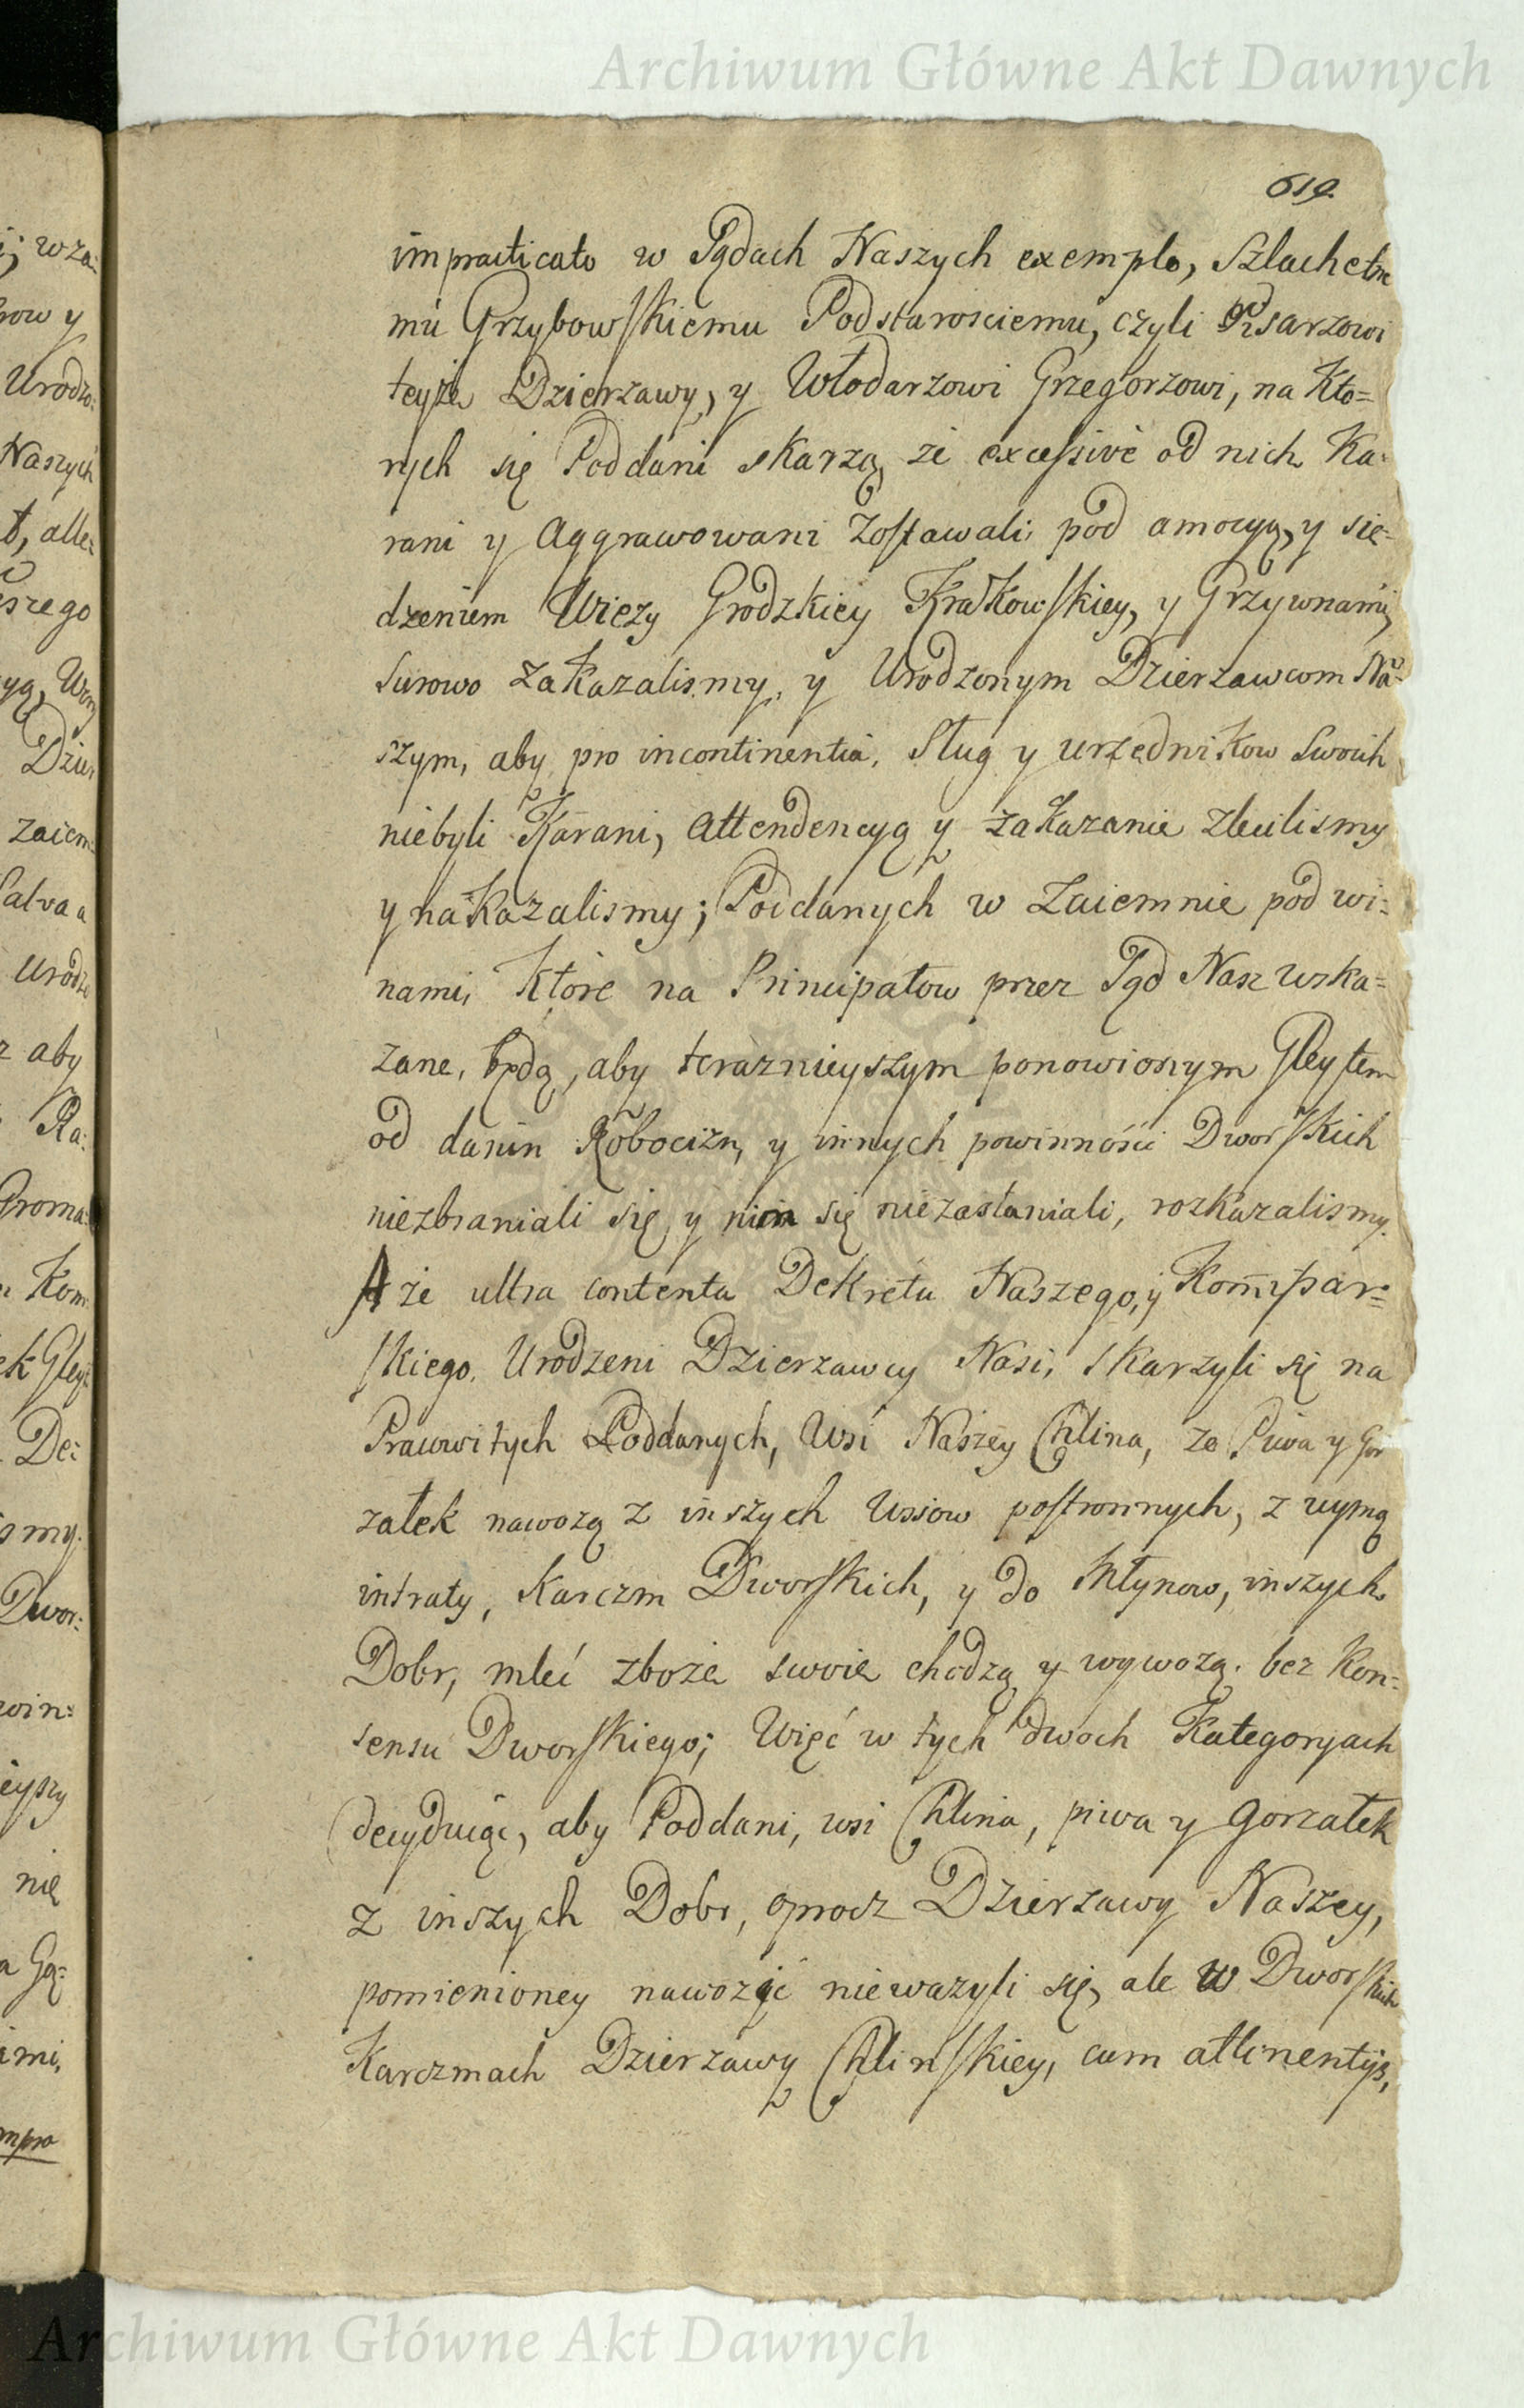 Archiwum Główne Akt Dawnych
619.
impracticato w Sądach Naszych exemplo, Szlachetne
mu Grzybowskiemu Podstarosciemu, czyli Pisarzowi
teyże Dzierzawy, y Włodarzowi Grzegorzowi, na Kto=
rych się Poddani skarzą, że excessivé od nich Ka=
rani y Aggrawowani Zostawali, pod amocyą, y sie=
dzeniem Wiezy Grodzkiey Krakowskiey, y Grzywnami,
Surowo zakazalismy, y Urodzonym Dzierzawcom Na=
szym, aby pro incontinentia, Sług y urzędnikow Swoich
niebyli Karani, Attendencyą y zakazanie zlecilismy
y nakazalismy; Poddanych w Zaiemnie pod wi=
nami, Które na Principałow przez Sąd Nasz wska=
zane, będą, aby teraznieyszym ponowionym Gleytem
od danin Robocizn, y innych powinności Dworskich
niezbraniali się, y nim się niezasłaniali, rozkazalismy.
A że ultra contenta Dekretu Naszego, y Kommissar=
skiego, Urodzeni Dzierzawcy Nasi, skarzyli się na
Pracowitych Poddanych, Wsi Naszey Chlina, ze Piwa y Gor
załek nawozą z inszych Wsiow postronnych, z uymą
intraty, Karczm Dworskich, y do Młynow, inszych
Dobr, mleć zboże swoie chodzą y wywozą, bez Kon=
sensu Dworskiego; Więc w tych dwoch Kategoryach
decyduiąc, aby Poddani, wsi Chlina, piwa y Gorzałek
z inszych Dobr, oprocz Dzierzawy Naszey,
pomienioney nawozić nieważyli się, ale w Dworskich
Karczmach Dzierzawy Chlinskiey, cum attinentijs,
Archiwum Główne Akt Dawnych